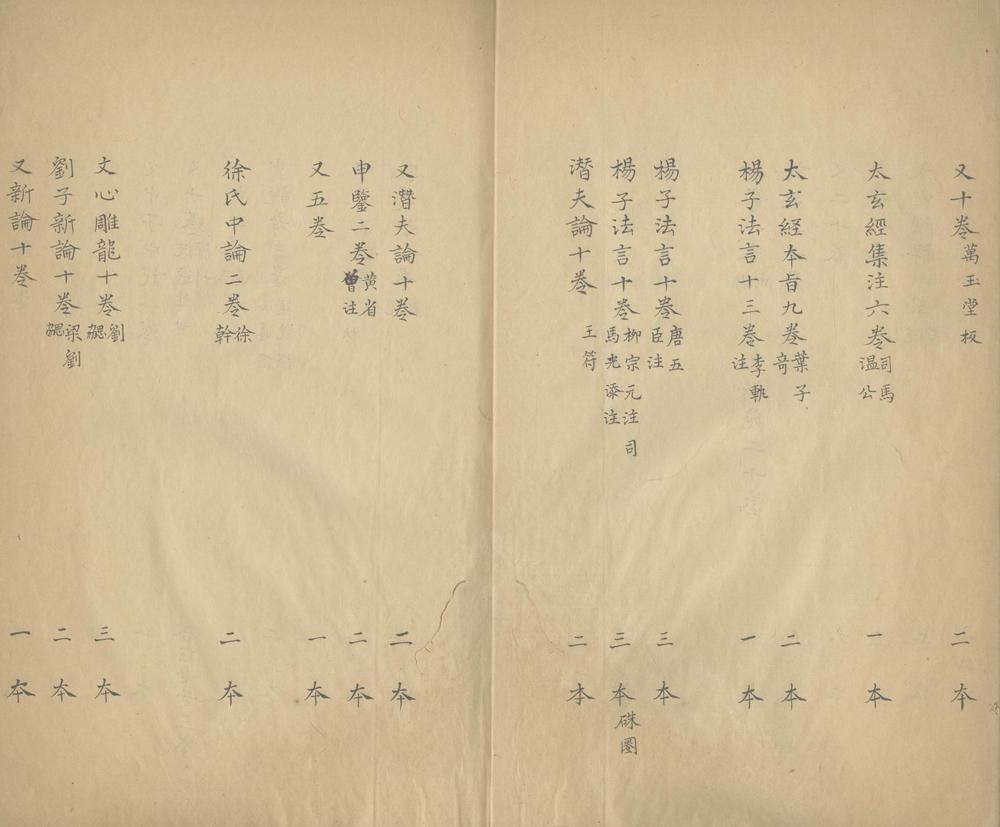 又十卷萬玉堂板 二本
太玄經集注六卷司馬温公 一本
太玄經本旨九卷葉子奇 二本
楊子法言十三卷李軌注 一本
楊子法言十卷唐五臣注 三本
楊子法言十卷柳宗元注司馬光添注 三本硃圏
潛夫論十卷王符 二本
又潛夫論十卷 二本
申鑒二卷黄省曾注 二本
又五卷 一本
徐氏中論二卷徐幹 二本
文心雕龍十卷劉勰 三本
劉子新論十卷梁劉勰 二本
又新論十卷 一本